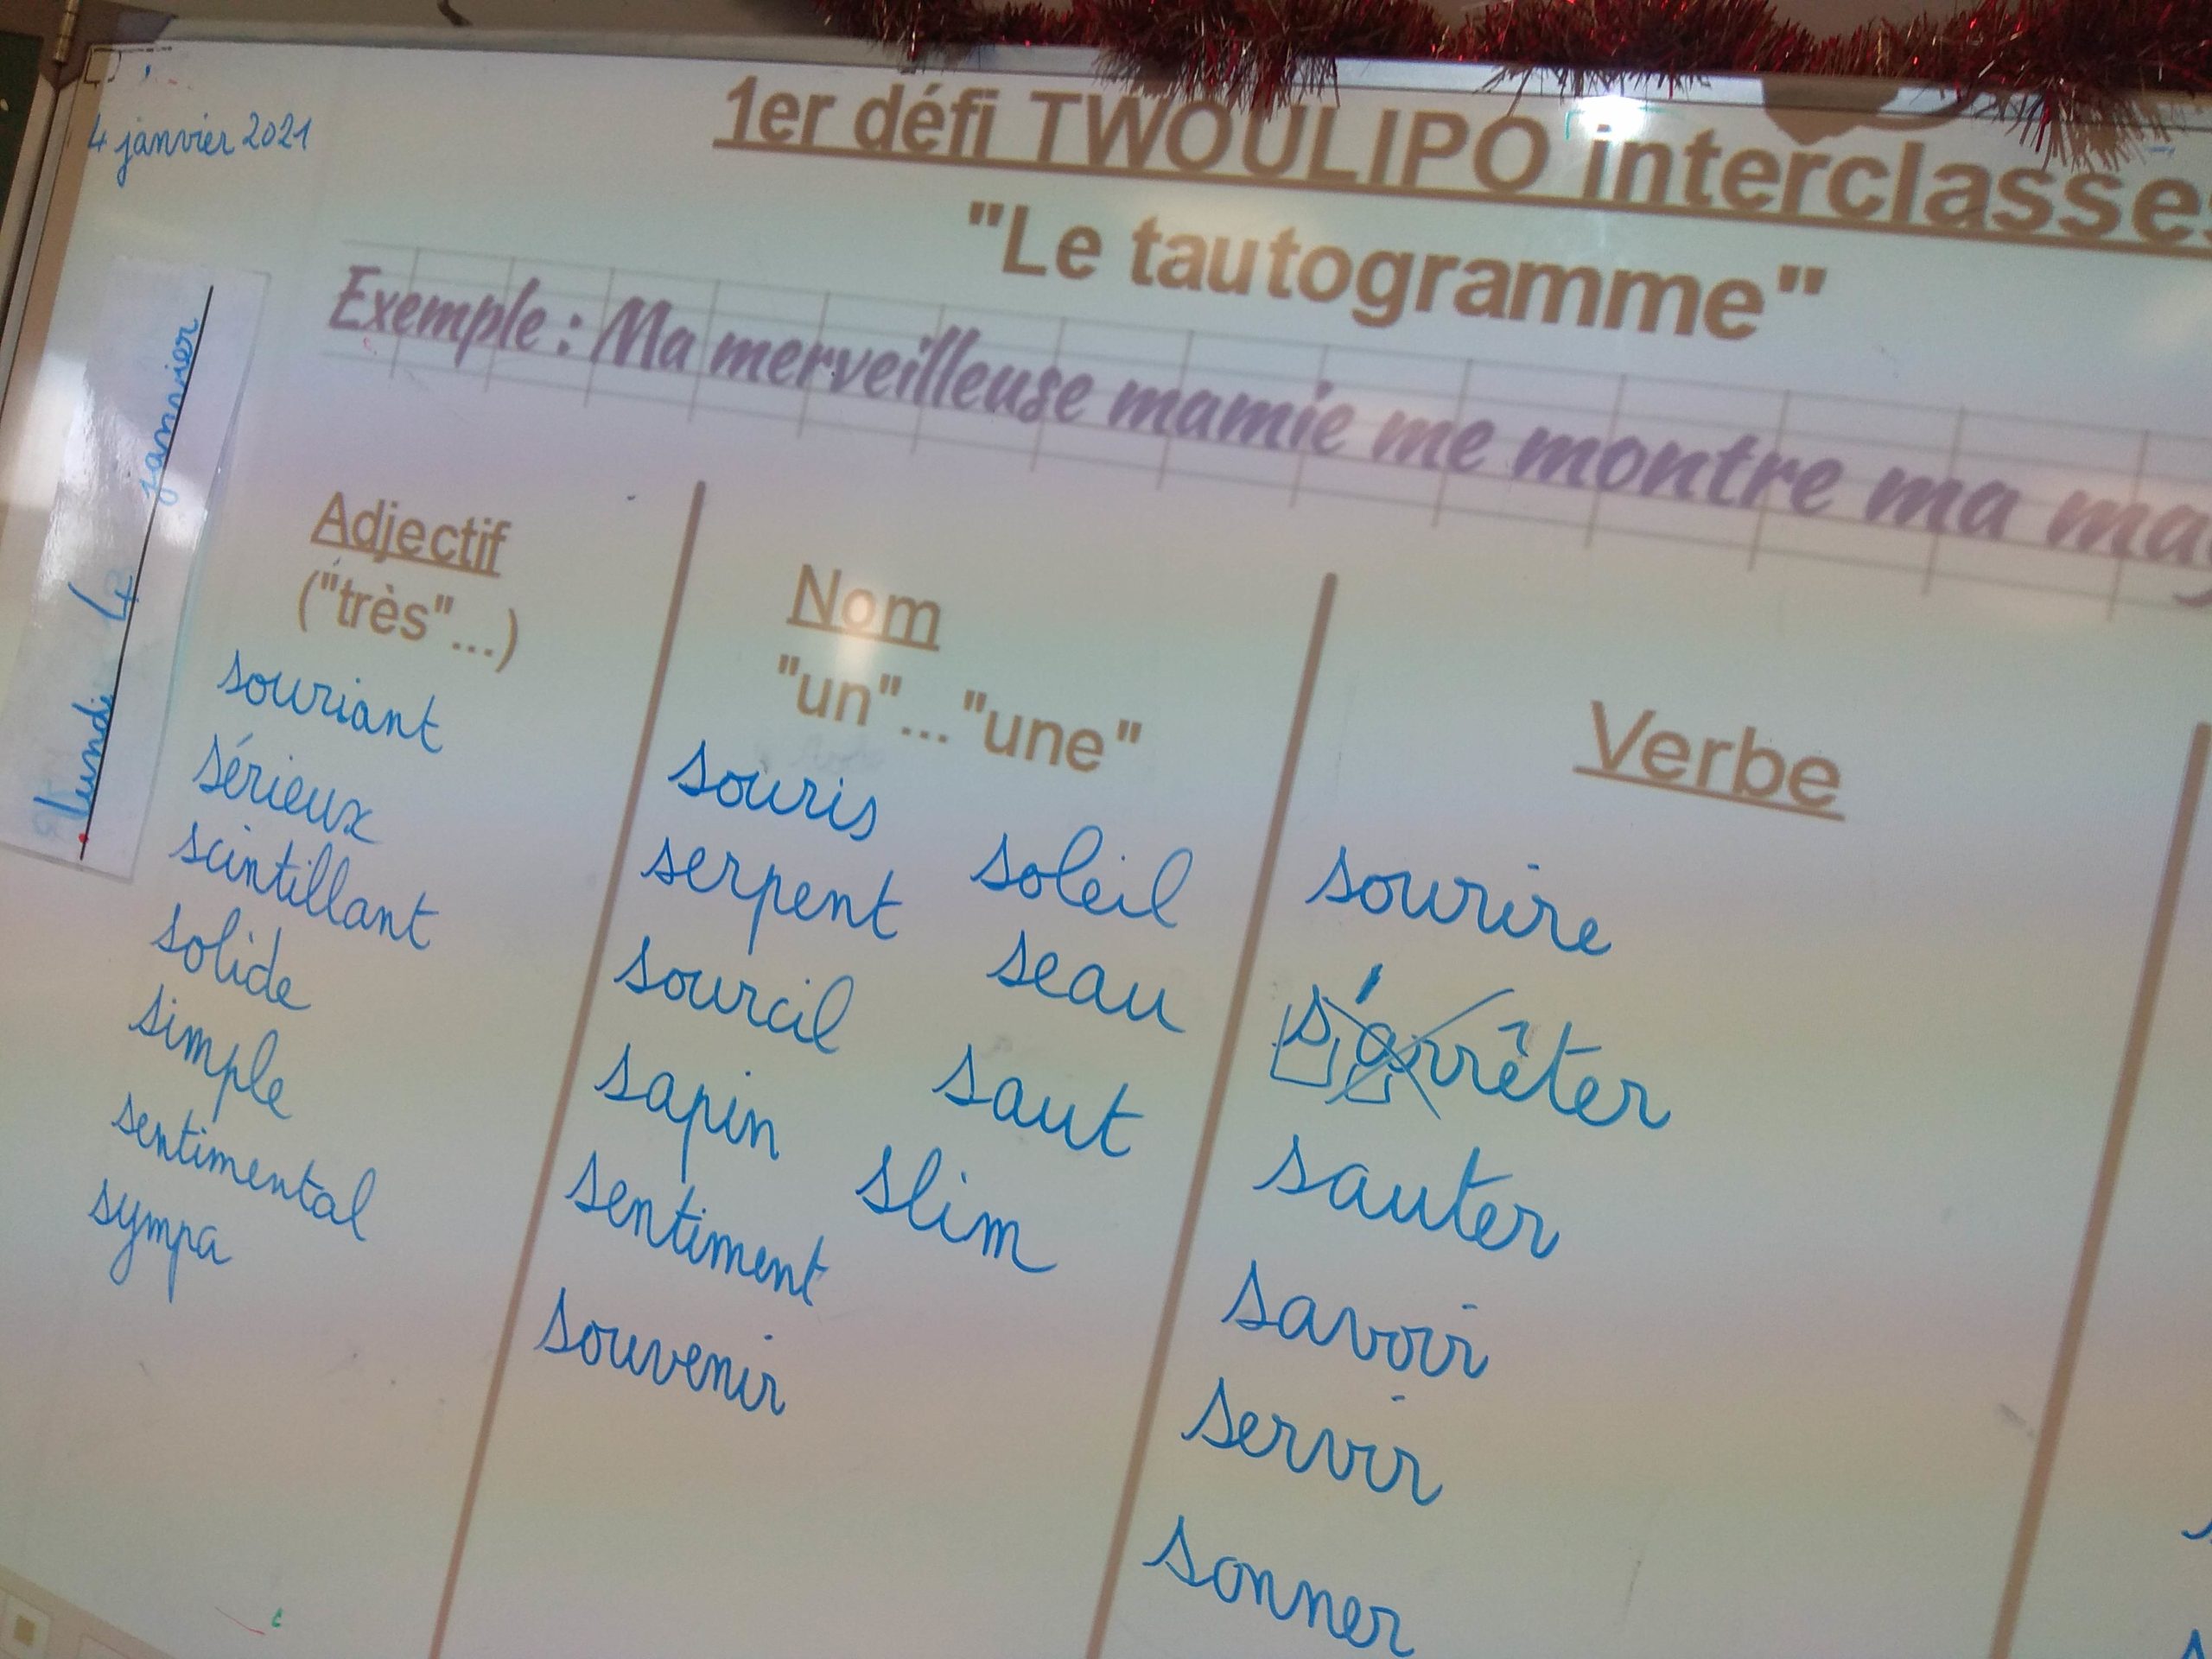 4 janvier 2021
1er défi TWOULIPO interclasses
"Le tautogramme"
Exemple : Ma merveilleuse mamie me montre ma
lundi 4 janvier
Adjectif
("très"...)
souriant
sérieux
scintillant
solide
simple
sentimental
sympa
Nom
"un"... "une"
souris
serpent
sourcil
sapin
sentiment
souvenir
soleil
seau
saut
slim
Verbe
sourire
s'arrêter
sauter
savoir
servir
sonner